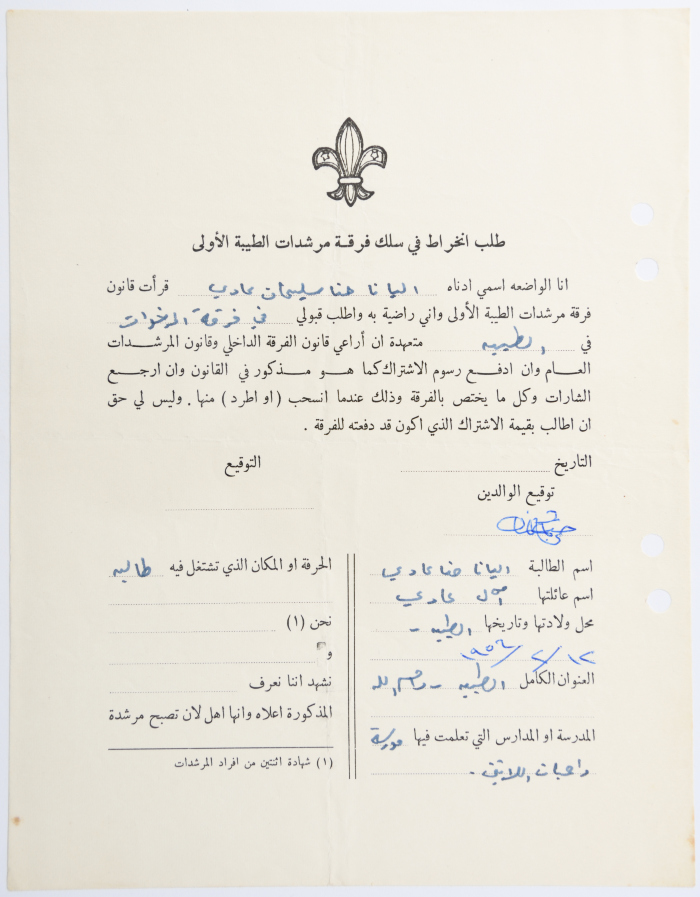 طلب انخراط في سلك فرقة مرشدات الطيبة الأولى
انا الواضعه اسمي ادناه اليانا حنا سليمان عادي قرأت قانون
فرقة مرشدات الطيبة الأولى واني راضية به واطلب قبولي في فرقة الزهرات
في الطيبه متعهدة ان أراعي قانون الفرقة الداخلي وقانون المرشدات
العام وان ادفع رسوم الاشتراك كما هو مذكور في القانون وان ارجع
الشارات وكل ما يختص بالفرقة وذلك عندما انسحب ( او اطرد ) منها . وليس لي حق
ان اطالب بقيمة الاشتراك الذي اكون قد دفعته للفرقة .
التاريخ
التوقيع
توقيع الوالدين
اسم الطالبة اليانا حنا عادي
اسم عائلتها آل عادي
محل ولادتها وتاريخها الطيبه -
١٢/٢/١٩٥٦
العنوان الكامل الطيبه - رام الله
المدرسة او المدارس التي تعلمت فيها مدرسة
راهبات اللاتين .
الحرفة او المكان الذي تشتغل فيه طالبه
نحن (١)
و
نشهد اننا نعرف
المذكورة اعلاه وانها اهل لان تصبح مرشدة
(١) شهادة اثنتين من افراد المرشدات